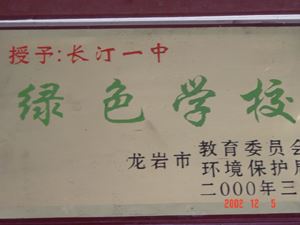 授予:长汀一中
绿色学校
龙岩市
教育委员会
环境保护局
二000年三
2002 12 5